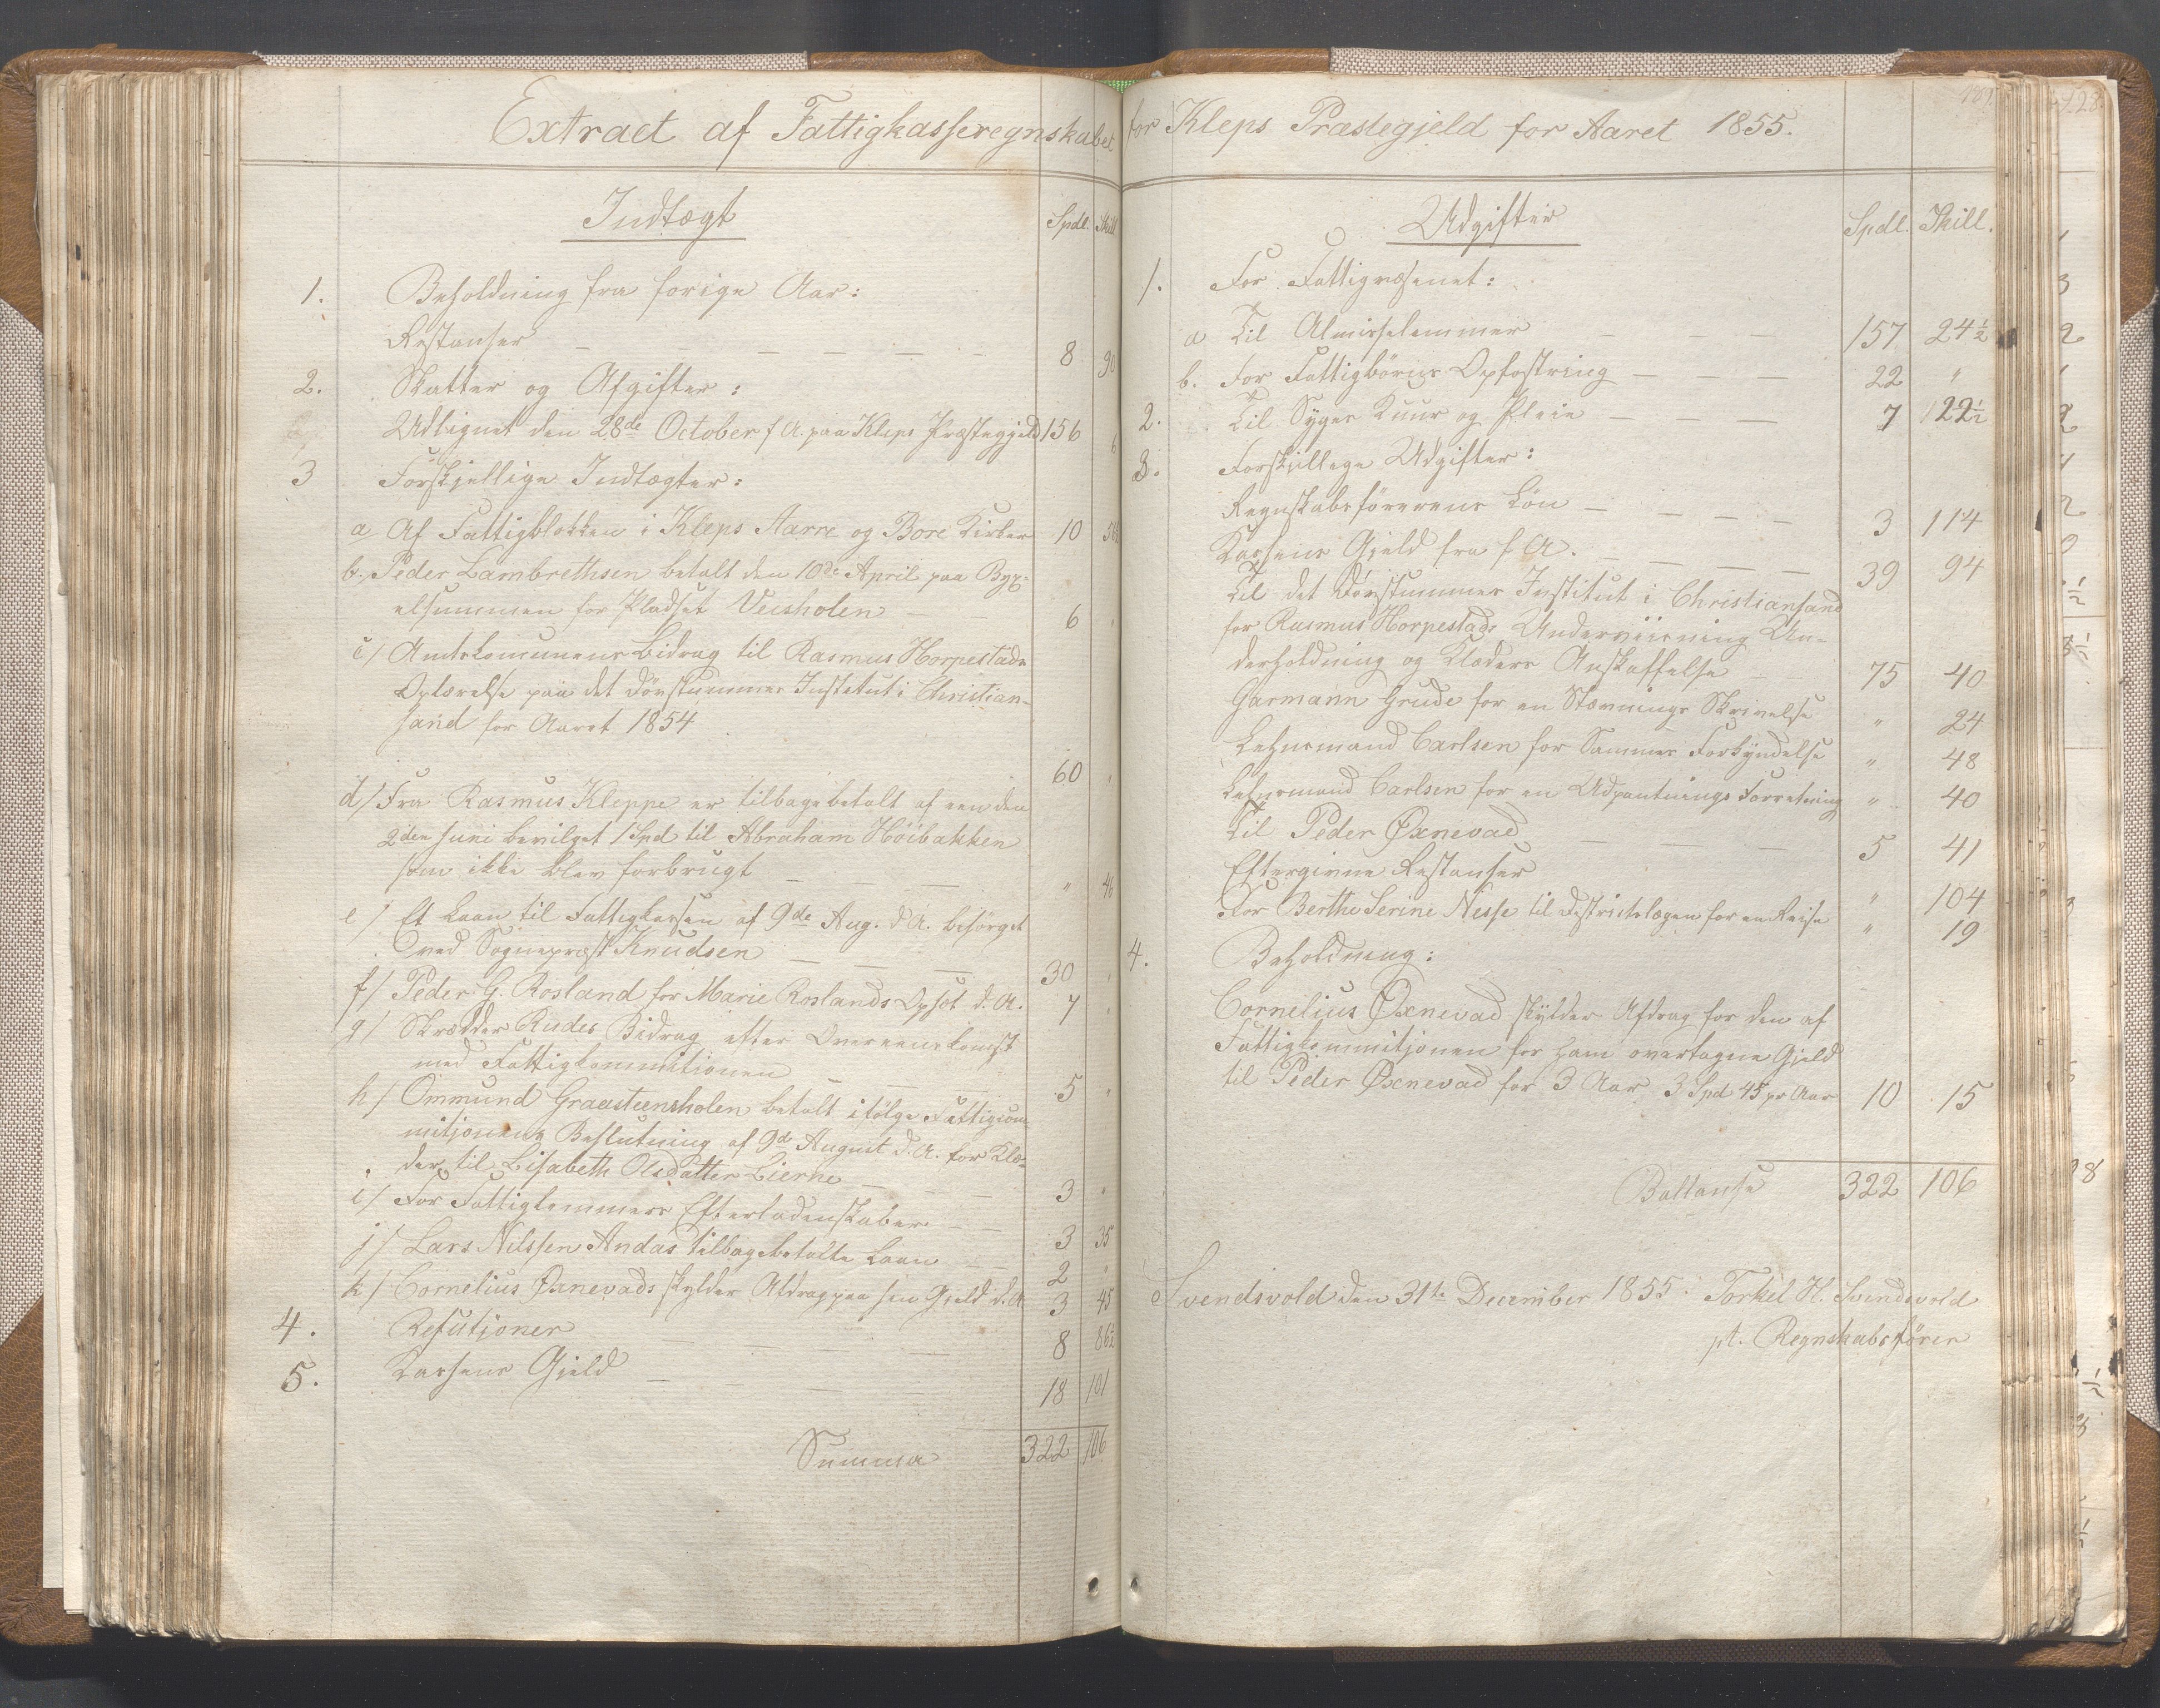 Extract af Fattigkasseregnskabet for Kleps Præstegjeld for Aaret 1855.
Indtægt
Spdl. Skill
1. Beholdning fra forige Aar:
Restanser 8 90
2. Skatter og Afgifter:
Udlignet den 28de October f A. paa Kleps Præstegjeld 156 6
3 Forskjellige Indtægter:
a Af Fattigblokken i Kleps Aarre og Bore Kirker 10
b., Peder Lambrethsen betalt den 10de April paa Byg-
elsummen for Pladset Veisholen 6 "
c/ Amtskomunens Bidrag til Rasmus Horpestads
Oplærelse paa det Døvstummes Institut i Christian-
sand for Aaret 1854
60 "
d/ Fra Rasmus Kleppe er tilbagebetalt af een den
2den Juni bevilget 1 Spd til Abraham Höibakken
som ikke blev forbrugt " 46
e/ Et Laan til Fattigkassen af 9de Aug. d A. besørget
ved Sognepræst Knudsen 30 "
f/ Peder G. Rosland for Marie Roslands Opsøt d. A. 7 "
g/ Skrædder Rudes Bidrag efter Overeenskomst
med Fattigkommitionen 5 "
h/ Ommund Graasteensholen betalt ifølge Fattigcom-
mitjonens Beslutning af 9de August d. A. for Klæ-
der til Lisabeth Olsdatter Lierne 3 "
i/ For Fattiglemmers Efterladenskaber 3 35
j/ Lars Nilssen Andas tilbagebetalte Laan 2 "
k/ Cornelius Øxnevads skylder Afdrag paa sin Gjeld d. A 3 45
4. Refutjoner 8 86½
5. Kassens Gjeld 18 101
Summa 322 106
Udgifter
Spdl. Skill.
1. For Fattigvæsenet:
a Til Almisselemmer 157 24½
b. For Fattigbørns Opfostring 22 "
2. Til Syges Kuur og Pleie 7 122½
3. Forskjellige Udgifter:
Regnskabsførerens Løn 3 114
Kassens Gjeld fra f A. 39 94
Til det Døvstummes Institut i Christiansand
for Rasmus Horpestads Underviisning Un-
derholdning og Klæders Anskaffelse 75 40
Garmann Grude for en Stævnings Skrivelse " 24
Lehnsmand Carlsen for Sammes Forkyndelse " 48
Lehnsmand Carlsen for en Udpantnings Forretning " 40
Til Peder Øxnevad 5 41
Eftergivne Restanser " 104
For Berthe Serine Nesse til Distriktslægen for en Reise " 19
4. Beholdning:
Cornelius Øxnevad skylder Afdrag for den af
Fattigkommitjonen for ham overtagne Gjeld
til Peder Øxnevad for 3 Aar 3 Spd 45 pr Aar 10 15
Ballanse 322 106
Svendsvold den 31te December 1855. Torkel H. Svendsvold
pt. Regnskabsfører